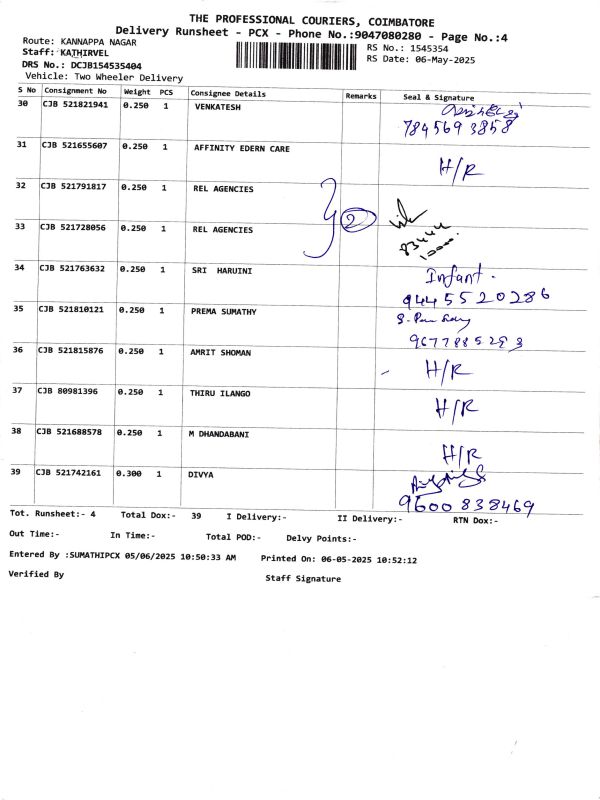 THE PROFESSIONAL COURIERS, COIMBATORE
Delivery Runsheet - PCX - Phone No.:9047080280 - Page No.:4
Route: KANNAPPA NAGAR
Staff: KATHIRVEL
DRS No.: DCJB154535404
Vehicle: Two Wheeler Delivery
RS No.: 1545354
RS Date: 06-May-2025
S No Consignment No Weight PCS Consignee Details Remarks Seal & Signature
30 CJB 521821941 0.250 1 VENKATESH
7845693858
31 CJB 521655607 0.250 1 AFFINITY EDERN CARE H/R
32 CJB 521791817 0.250 1 REL AGENCIES
2
33 CJB 521728056 0.250 1 REL AGENCIES
83444
10000.
34 CJB 521763632 0.250 1 SRI HARUINI Infant.
9445520286
35 CJB 521810121 0.250 1 PREMA SUMATHY
9677885293
36 CJB 521815876 0.250 1 AMRIT SHOMAN H/R
37 CJB 80981396 0.250 1 THIRU ILANGO H/R
38 CJB 521688578 0.250 1 M DHANDABANI H/R
39 CJB 521742161 0.300 1 DIVYA
9600838469
Tot. Runsheet:- 4 Total Dox:- 39 I Delivery:- II Delivery:- RTN Dox:-
Out Time:- In Time:- Total POD:- Delvy Points:-
Entered By :SUMATHIPCX 05/06/2025 10:50:33 AM Printed On: 06-05-2025 10:52:12
Verified By Staff Signature